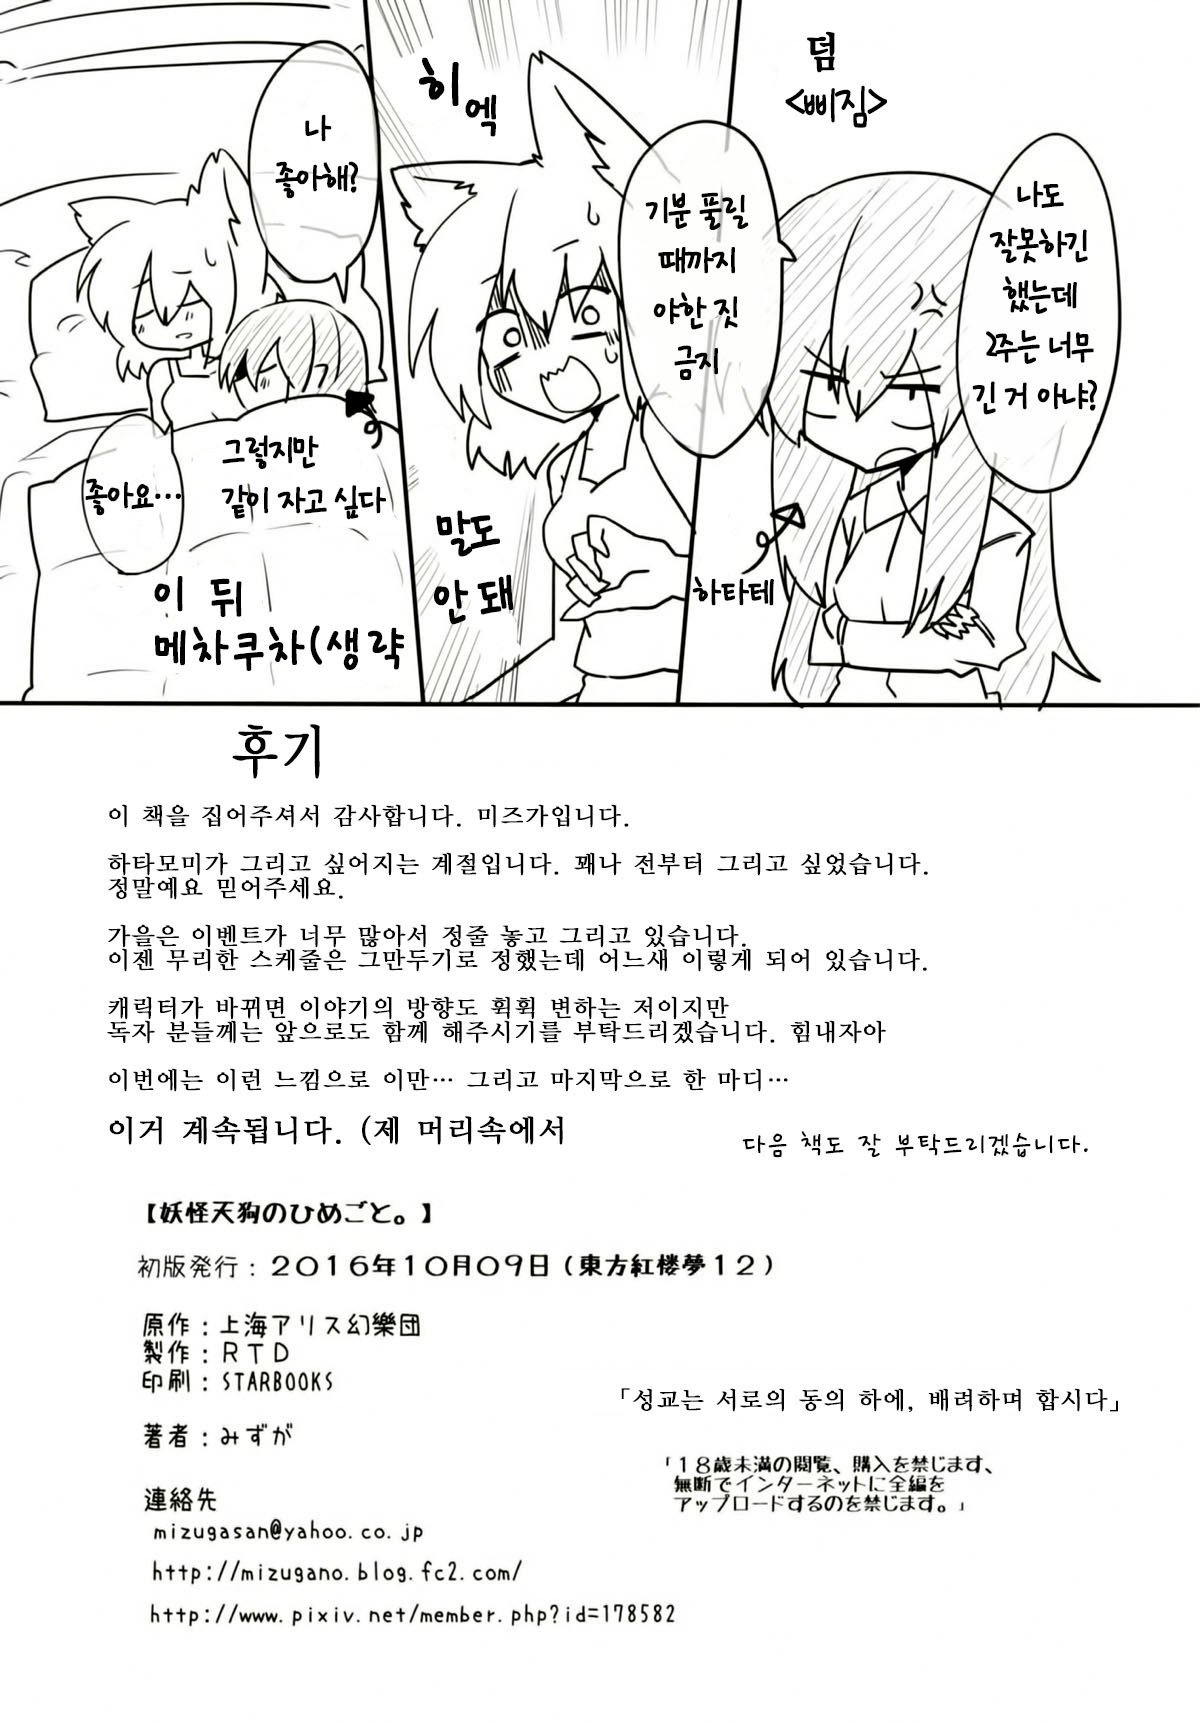 덤
<삐짐>
나도
잘못하긴
했는데
2주는 너무
긴 거 아냐?
하타테
기분 풀릴
때까지
야한 짓
금지
히엑
말도
안 돼
나
좋아해?
좋아요…
그렇지만
같이 자고 싶다
이 뒤
메차쿠차(생략
후기
이 책을 집어주셔서 감사합니다. 미즈가입니다.
하타모미가 그리고 싶어지는 계절입니다. 꽤나 전부터 그리고 싶었습니다.
정말예요 믿어주세요.
가을은 이벤트가 너무 많아서 정줄 놓고 그리고 있습니다.
이젠 무리한 스케줄은 그만두기로 정했는데 어느새 이렇게 되어 있습니다.
캐릭터가 바뀌면 이야기의 방향도 휙휙 변하는 저이지만
독자 분들께는 앞으로도 함께 해주시기를 부탁드리겠습니다. 힘내자아
이번에는 이런 느낌으로 이만… 그리고 마지막으로 한 마디…
이거 계속됩니다. (제 머리속에서
다음 책도 잘 부탁드리겠습니다.
【妖怪天狗のひめごと。】
初版発行：２０１６年１０月０９日（東方紅楼夢１２）
原作：上海アリス幻樂団
製作：ＲＴＤ
印刷：STARBOOKS
著者：みずが
連絡先
mizugasan@yahoo.co.jp
http://mizugano.blog.fc2.com/
http://www.pixiv.net/member.php?id=178582
「성교는 서로의 동의 하에, 배려하며 합시다」
「１８歳未満の閲覧、購入を禁じます、
無断でインターネットに全編を
アップロードするのを禁じます。」